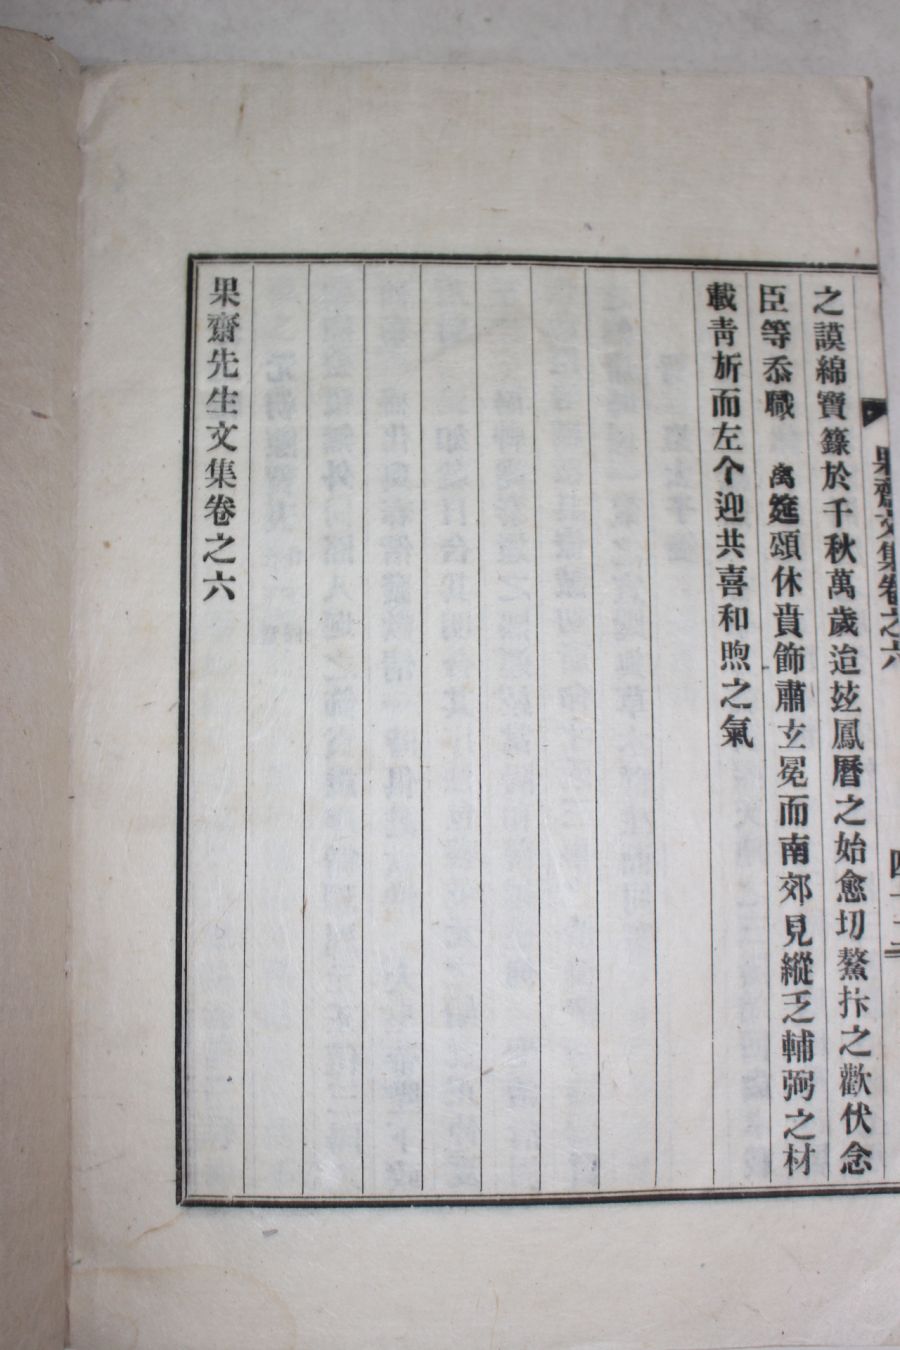 果齋文集卷之六
之謨綿寶籙於千秋萬歲迨玆鳳曆之始愈切鰲抃之歡伏念
臣等忝職 离筵頌休賁飾肅玄冕而南郊見縱乏輔弼之材
載靑旂而左个迎共喜和煦之氣
果齋先生文集卷之六